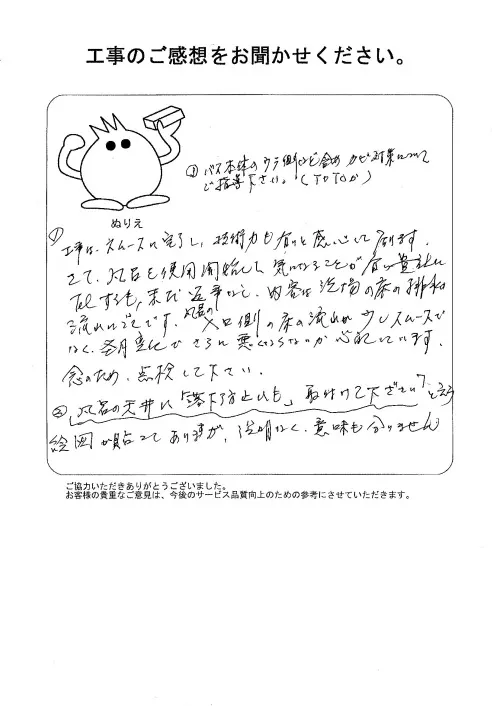 工事のご感想をお聞かせください。
③ バス本体のウラ側など含め カビ対策について
ご指導下さい。（TOTOか）
ぬりえ
① 工事は、スムースに完了し、技術力も有りと感心して居ります。
さて、風呂を使用開始して 気になることが有り貴社に
Telするも、未だ返事なし、内容は洗場の床の排水
流れいごとです。風呂の入口側の床の流れが少しスムースで
なく、 さらに悪くならないか心配しています。
念のため、点検して下さい。
② 風呂の天井に「落下防止ひも」取付けて下ださい？という
絵図が貼ってありますが、説明なく、意味も分りません
ご協力いただきありがとうございました。
お客様の貴重なご意見は、今後のサービス品質向上のための参考にさせていただきます。